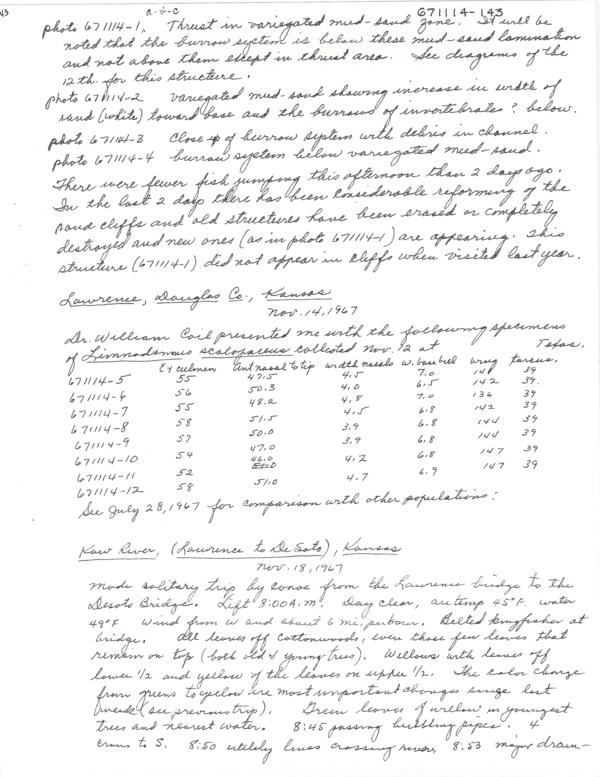 43
a-b-c 671114-143
photo 671114-1, Thrust in variegated mud-sand zone. It will be
noted that the burrow system is below these mud-sand lamination
and not above them except in thrust area. See diagrams of the
12th. for this structure.
photo 671114-2 variegated mud-sand showing increase in width of
sand (white) toward base and the burrows of invertebrates? below.
photo 671114-3 Close up of burrow system with debris in channel.
photo 671114-4 burrow system below variegated mud-sand.
There were fewer fish jumping this afternoon than 2 days ago.
In the last 2 days there has been considerable reforming of the
sand cliffs and old structures have been erased or completely
destroyed and new ones (as in photo 671114-1) are appearing. This
structure (671114-1) did not appear in cliffs when visited last year.
Lawrence, Douglas Co., Kansas
Nov. 14, 1967
Dr. William Coil presented me with the following specimens
of Limnodromus scolopaceus collected Nov. 12 at Texas.
Ex culmen ant nasal to tip width nasals w. base bill wing tarsus.
671114-5 55 47.5 4.5 7.0 141 39
671114-6 56 50.3 4.0 6.5 142 39.
671114-7 55 48.2 4.8 7.0 136 39
671114-8 58 51.5 4.5 6.8 142 39
671114-9 57 50.0 3.9 6.8 144 39
671114-10 54 47.0 3.9 6.8 144 39
671114-11 52 46.0 4.2 6.8 147 39
671114-12 58 51.0 4.7 6.9 147 39
See July 28, 1967 for comparison with other populations:
Kaw River, (Lawrence to De Soto), Kansas
Nov. 18, 1967
Made solitary trip by canoe from the Lawrence bridge to the
Desoto Bridge. Left 8:00 A.M. Day clear, air temp 45°F. water
49°F. Wind from W and about 6 mi. per hour. Belted kingfisher at
bridge. All leaves off cottonwoods, even those few leaves that
remain on top (both old & young trees). Willows with leaves off
lower 1/2 and yellow of the leaves on upper 1/2. The color change
from greens to yellow are most important changes since last
week (see previous trip). Green leaves of willow in youngest
trees and nearest water. 8:45 passing bubbling pipes. 4
crows to S. 8:50 utility lines crossing river, 8:53 major drain-